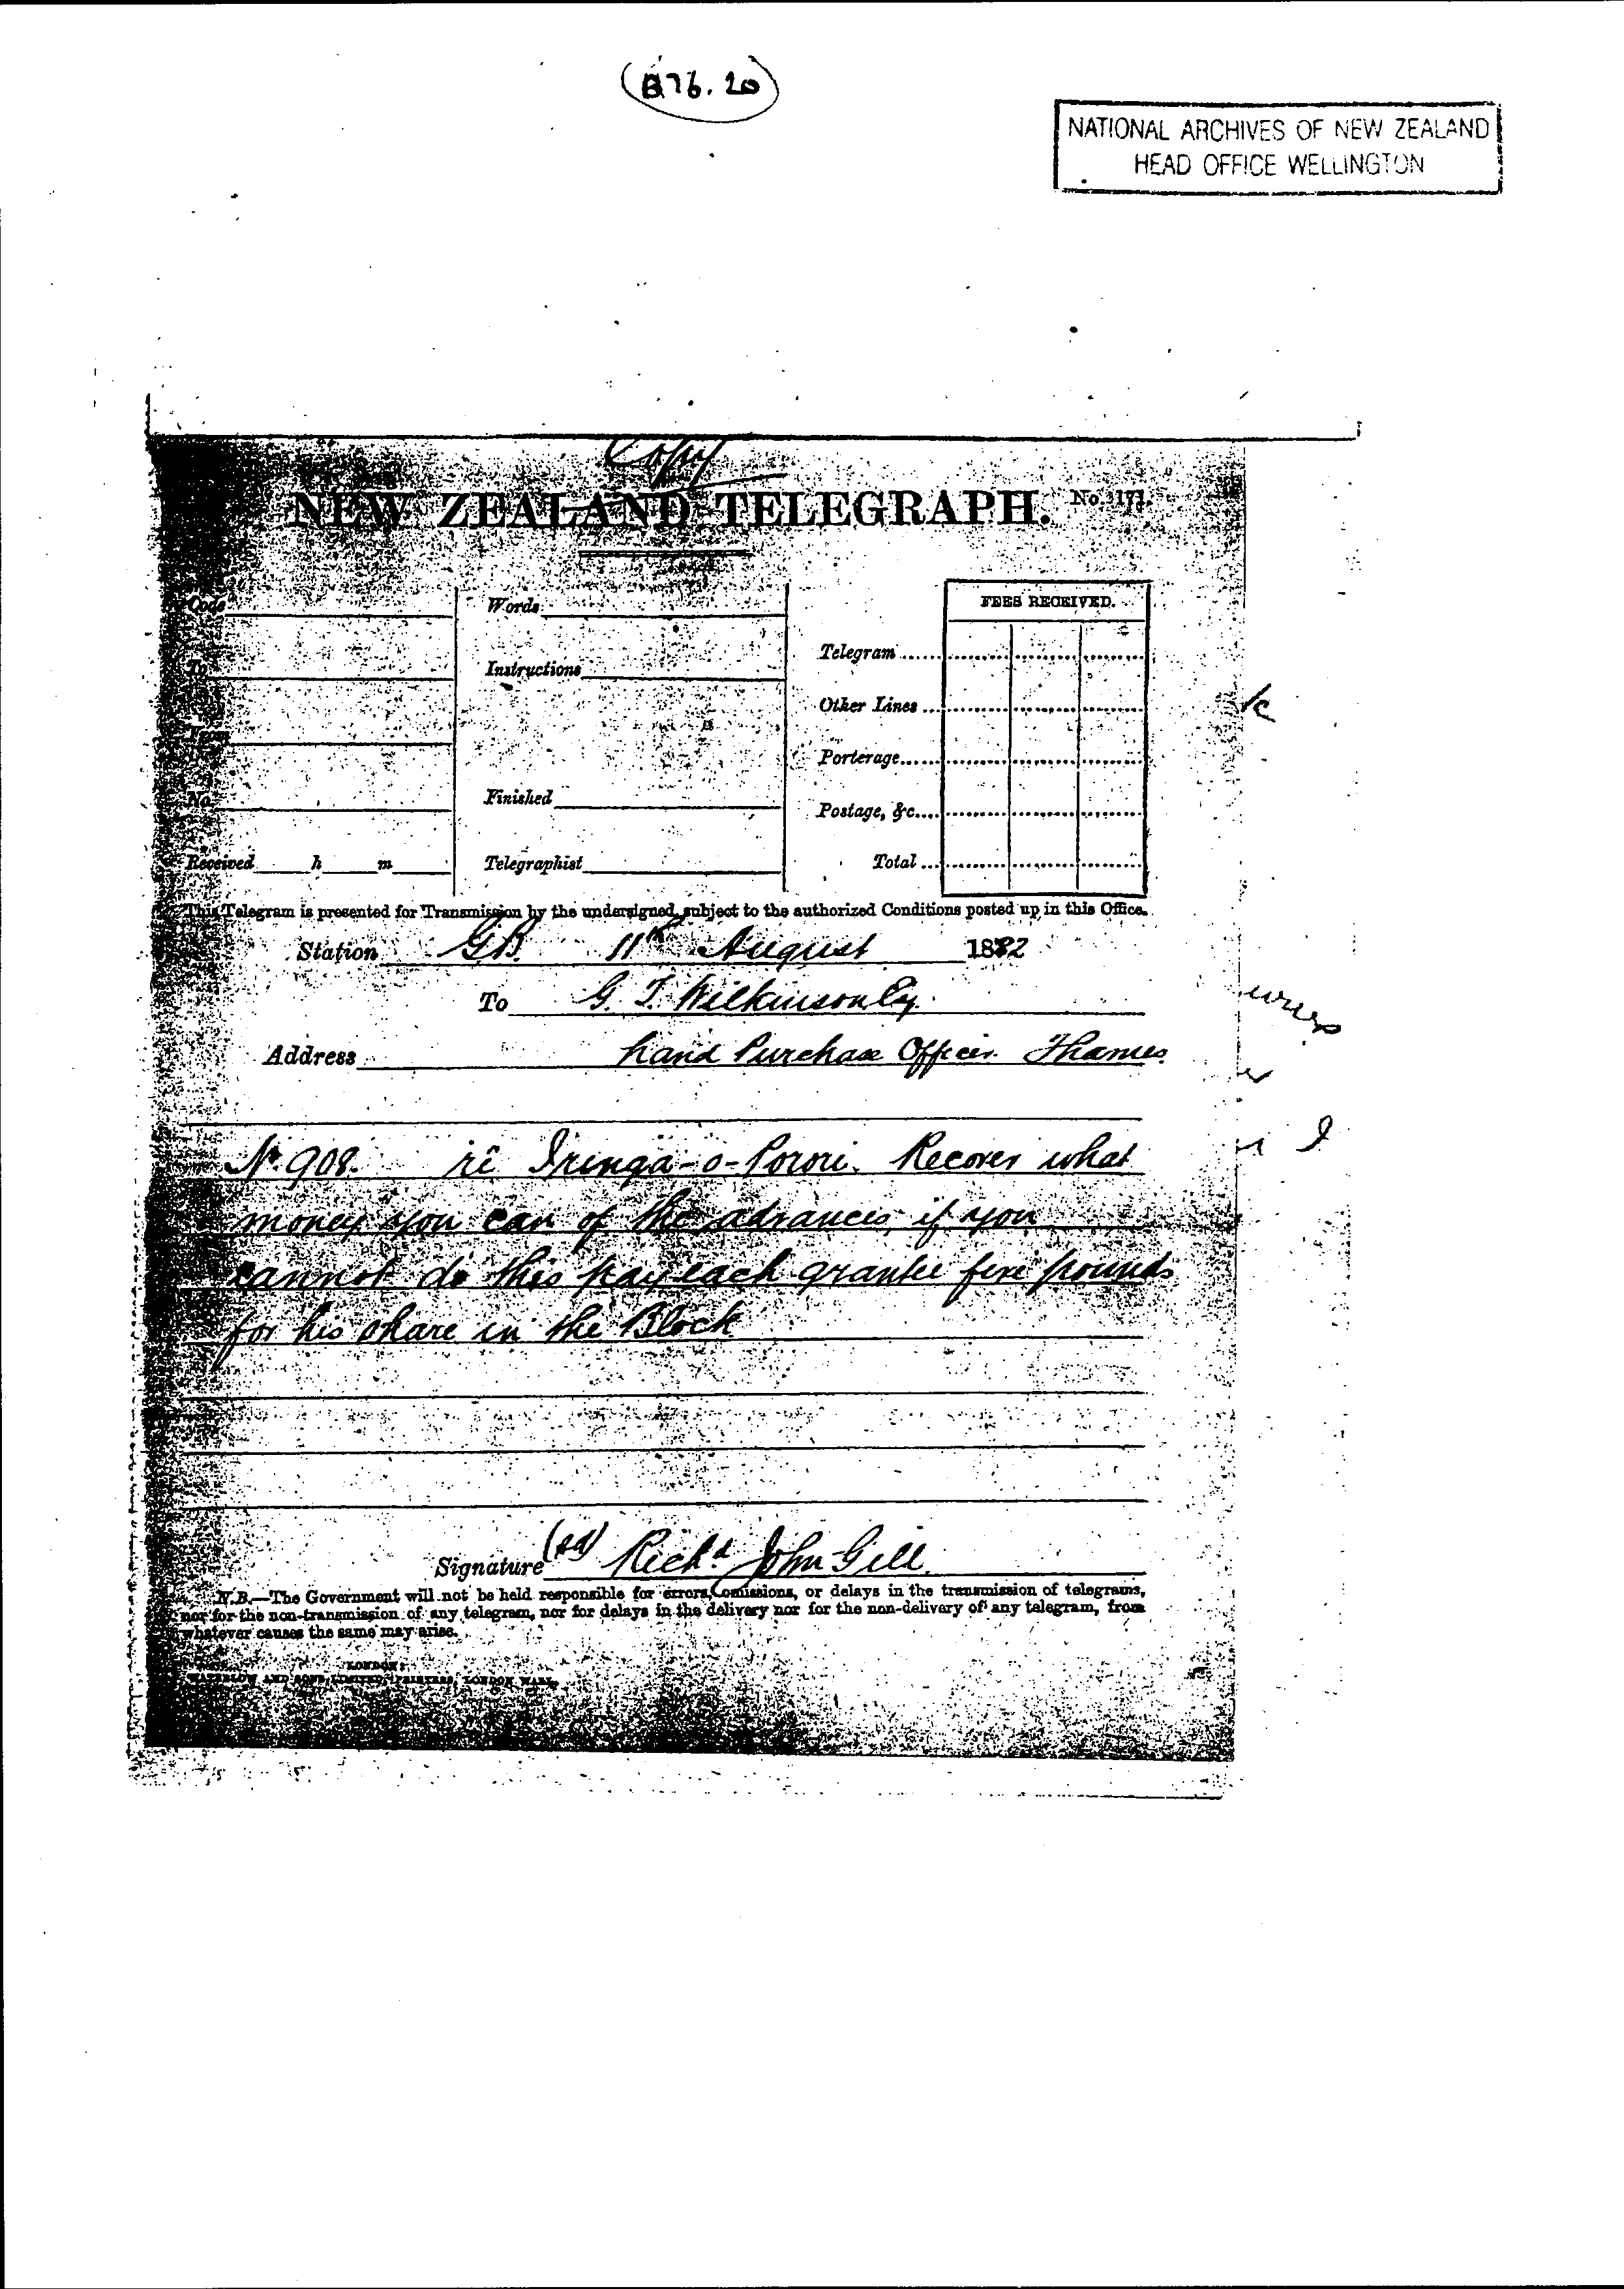 B76.20
NATIONAL ARCHIVES OF NEW ZEALAND
HEAD OFFICE WELLINGTON
Copy
NEW ZEALAND TELEGRAPH. No. 171.
Code
Words
FEES RECEIVED.
To
Instructions
Telegram
Other Lines
From
Porterage
No.
Finished
Postage, &c.
Received h m
Telegraphist
Total
This Telegram is presented for Transmission by the undersigned, subject to the authorized Conditions posted up in this Office.
Station G.B. 11th August 1882
To G. T. Wilkinson Esq.
Address Land Purchase Officer. Thames
No. 908. re Iringa-o-Porori. Recover what
money you can of the advances, if you
cannot do this pay each grantee five pounds
for his share in the Block
Signature (sd) Richd John Gill.
N.B.—The Government will not be held responsible for errors, omissions, or delays in the transmission of telegrams,
nor for the non-transmission of any telegram, nor for delays in the delivery nor for the non-delivery of any telegram, from
whatever causes the same may arise.
LONDON:
WATERLOW AND SONS, LIMITED, PRINTERS, LONDON WALL.